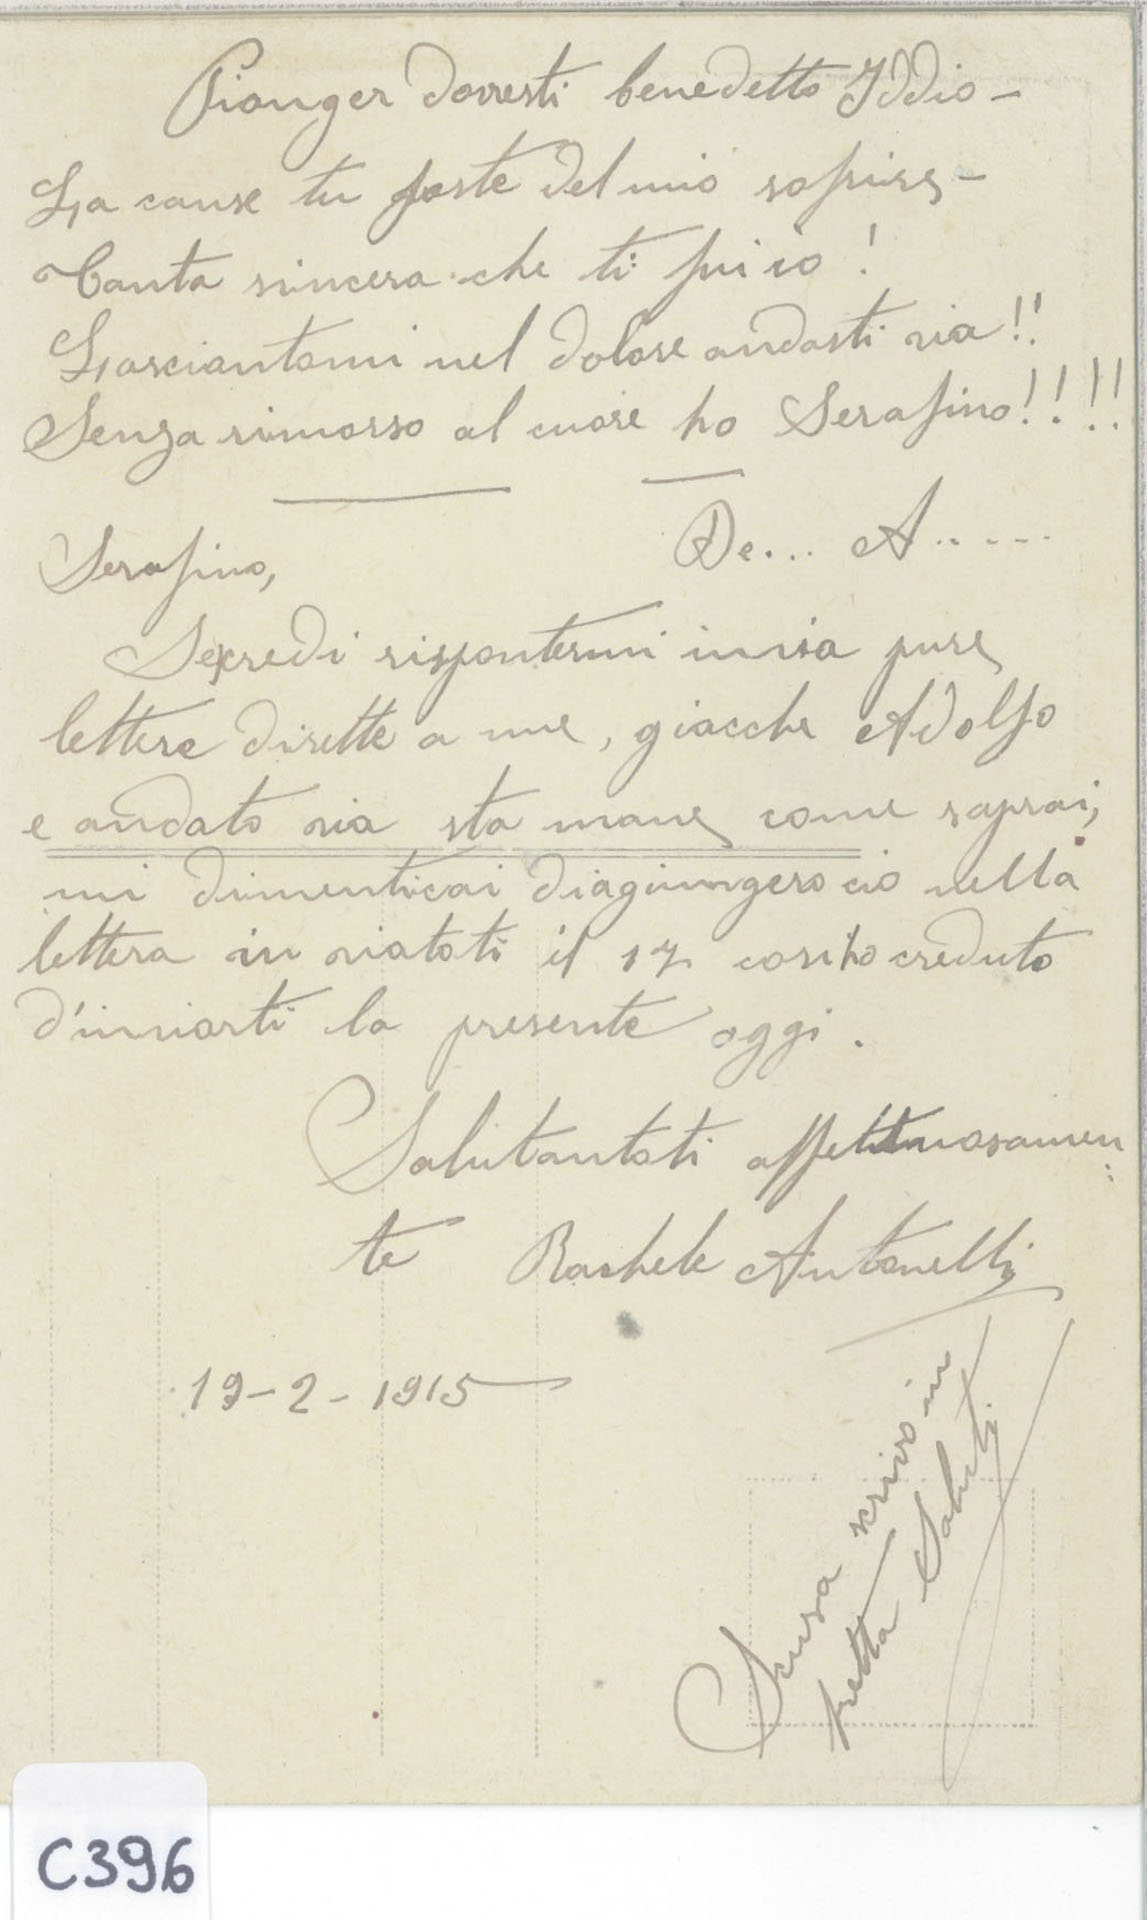 Pianger dovresti benedetto Iddio –
La cause tu foste del mio sospire –
Canta sincera che ti fui io !
Lasciantomi nel dolore andasti via !!
Senza rimorso al cuore ho Serafino!!!!
De... A.....
Serafino,
Se credi risponterni invia pure
lettere dirette a me, giacche Adolfo
e andato via sta mane come saprai,
mi dimenticai diagiungere ciò nella
lettera in viatati il 17 così ho creduto
d'inviarti la presente oggi.
Salutantoti affettuosamen
te Rachele Antonelli
19-2-1915
Scusa scrivo in
fretta Saluti
C396